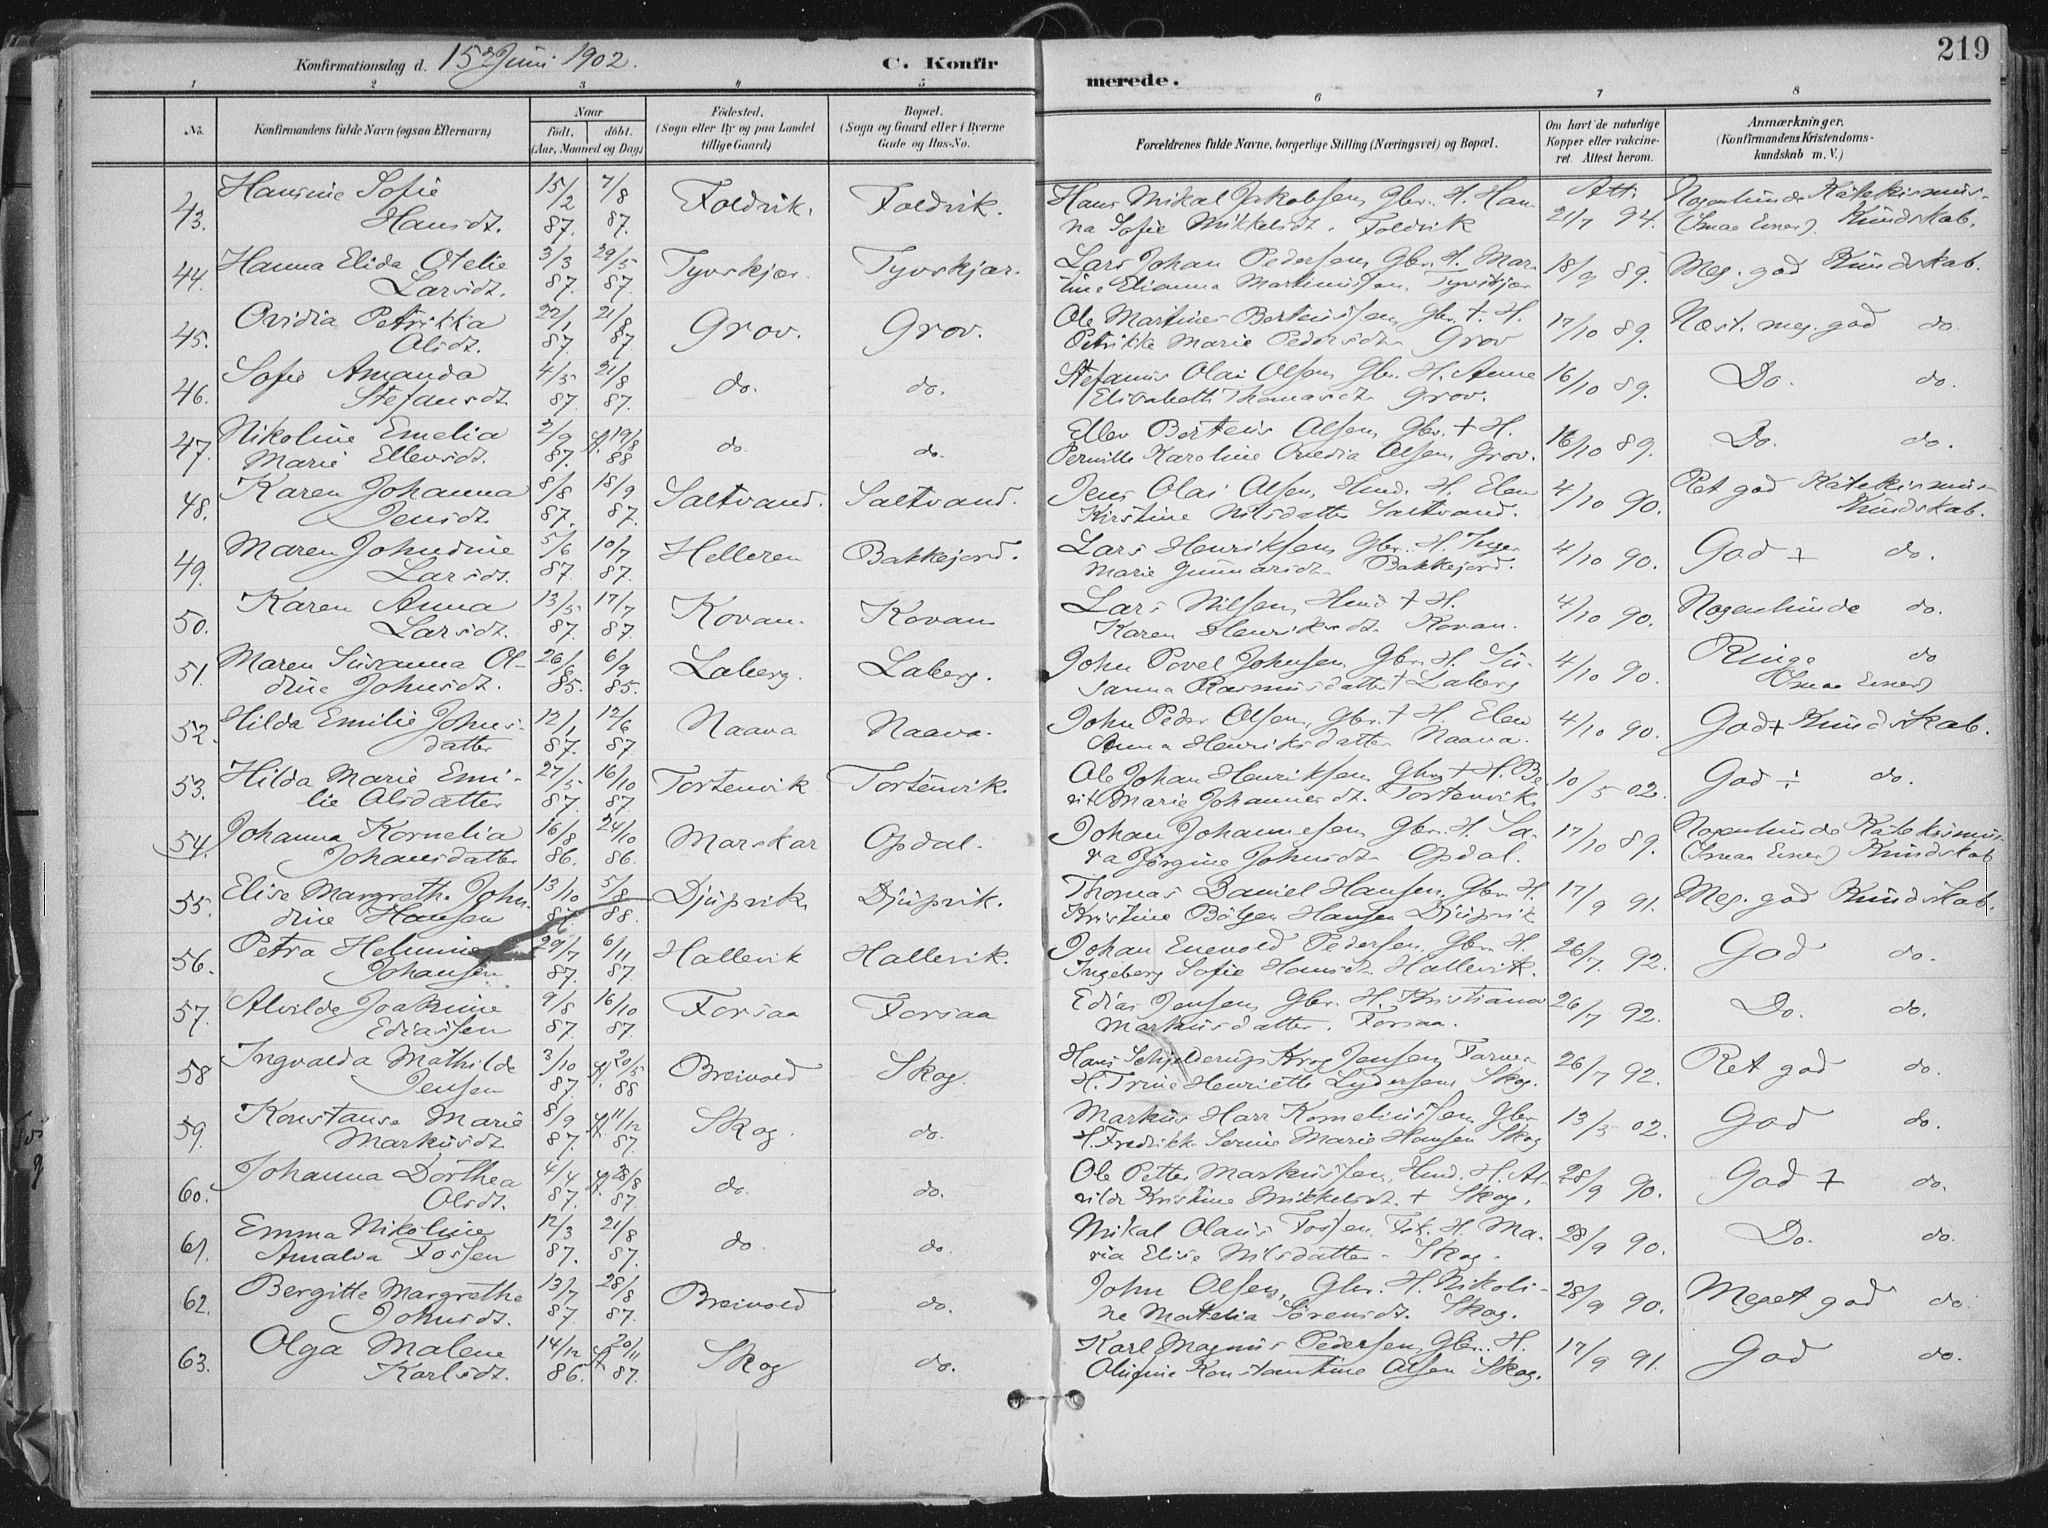 219
Konfirmationsdag d. 15de Juni 1902. C. Konfirmerede.
1 2 3 4 5 6 7 8
No. Konfirmandens fulde Navn (ogsaa Efternavn) Naar födt. döbt. (Aar, Maaned og Dag) Födested. (Sogn eller By og paa Landet tillige Gaard) Bopæl. (Sogn og Gaard eller i Byerne Gade og Hus-No. Forældrenes fulde Navne, borgerlige Stilling (Næringsvei) og Bopæl. Om havt de naturlige Kopper eller vakcineret. Attest herom. Anmærkninger. (Konfirmandens Kristendomskundskab m. V.)
43. Hansine Sofie 15/2 7/8 Foldvik. Foldvik. Hans Mikal Jakobsen, Gbr. H. Han- Att. Nogenlunde Katekismus-
Hansdt. 87. 87. na Sofie Mikkelsdt. Foldvik 21/7 94. (Smaa Evner). Kundskab.
44. Hanna Elida Otelie 3/3 29/5 Tyvskjær Tyvskjær. Lars Johan Pedersen, Gbr. H. Mar- 18/9 89. Meg. god Kundskab.
Larsdt. 87. 87. tine Elianna Martinussen, Tyvskjær
45. Ovidia Petrikka 22/1 21/8 Grov. Grov. Ole Martines Berteussen, Gbr. + H. 17/10 89. Næst. meg. god do
Olsdt. 87. 87 Petrikke Marie Pedersdt. Grov
46. Sofie Amanda 4/5 21/8 do. do. Stefanus Olai Olsen, Gbr. H. Anne 16/10 89. Do. do.
Stefansdt. 87. 87. Elisabeth Thomasdt. Grov.
47. Nikoline Emelia 2/9 19/8 do. do. Ellev Berteus Olsen, Gbr. + H. 16/10 89. Do. do.
Marie Ellevsdt. 87. 88 Pernille Karoline Ovedia Olsen, Grov.
48. Karen Johanna 8/8 18/9 Saltvand. Saltvand. Jens Olai Olsen, Hmd. H. Elen 4/10 90. Ret god Katekismus-
Jensdt. 87. 87. Kirstine Nilsdatter Saltvand. Kundskab.
49. Maren Johndine 5/6 10/7 Helleren Bakkejord. Lars Henriksen, Gbr. H. Inger 4/10 90. God + do.
Larsdt. 87. 87. Marie Gunnarsdt. Bakkejord.
50. Karen Anna 13/5 17/7 Kovan. Kovan Lars Nilsen, Hmd + H. 4/10 90. Nogenlunde do.
Larsdt. 87. 87. Karen Henriksdt. Kovan.
51. Maren Susanna Ol- 26/6 6/9 Laberg. Laberg. John Povel Johnsen, Gbr. H. Su- 4/10 90. Ringe do
dine Johnsdt. 85. 85. sanna Rasmusdatter + Laberg (Smaa Evner)
52. Hilda Emilie Johns- 12/1 12/6 Naava Naava. John Peder Olsen, Gbr. + H. Elen 4/10 90. God + Kundskab.
datter 87. 87 Anna Henriksdatter Naava.
53. Hilda Marie Emi- 27/5 16/10 Tortenvik Tortenvik. Ole Johan Henriksen, Gbr. + H. Be- 10/5 02. God ÷ do.
lie Olsdatter 87. 87 rit Marie Johannesdt. Tortenvik
54. Johanna Kornelia 16/8 24/10 Marskar Opdal. Johan Johannesen, Gbr. H. Sa- 17/10 89. Nogenlunde Katekismus-
Johansdatter 86. 86. ra Jørgine Johnsdt. Opdal. (Smaa Evner) Kundskab
55. Elise Margrethe John- 13/10 5/8 Djupvik Djupvik. Thomas Daniel Hansen, Gbr. H. 17/9 91. Meg. god Kundskab.
dine Hansen 88. Kristine Bolgen Hansen Djupvik
56. Petra Helmine 29/7 6/11 Hallevik Hallevik. Johan Enevold Pedersen, Gbr. H. 26/7 92. God do.
Johansen 87. 87 Ingeborg Sofie Hansdt. Hallevik.
57. Alvilde Joakime 9/8 16/10 Forsaa Forsaa Edias Jensen, Gbr. H. Kristianna 26/7 92. Do. do.
Ediassen 87. 87. Markusdatter. Forsaa.
58 Ingvalda Mathilde 3/10 20/5 Breivold Skog. Hans Schjelderup Krog Jensen, Farver 26/7 92. Ret god do.
Jensen 87. 88 H. Trine Henriette Lydersen, Skog.
59. Konstanse Marie 8/9 11/12 Skog. do. Markus Harr Korneliussen, Gbr. 13/5 02. God do.
Markusdt. 87. 87. H. Fredrikk. Serine Marie Hansen Skog
60. Johanna Dorthea 4/4 28/8 do. do. Ole Petter Markussen, Hmd. H. Al- 28/9 90. God + do.
Olsdt. 87. 87. vilde Kristine Mikkelsdt. + Skog.
61. Emma Nikoline 12/3 21/8 do. do. Mikal Olaus Fossen, Fisk. H. Ma- 28/9 90. Do. do.
Amalia Fossen 87. 87. ria Elise Nilsdatter Skog.
62. Bergitte Margrethe 13/7 28/8 Breivold do. John Olsen, Gbr. H. Nikoli- 28/9 90. Meget god do.
Johnsdt. 87. 87. ne Matelia Sørensdt. Skog.
63. Olga Malene 14/12 20/11 Skog do. Karl Magnus Pedersen, Gbr. H. 17/9 91. God do.
Karlsdt. 86. 87. Olufine Konstantine Olsen Skog.